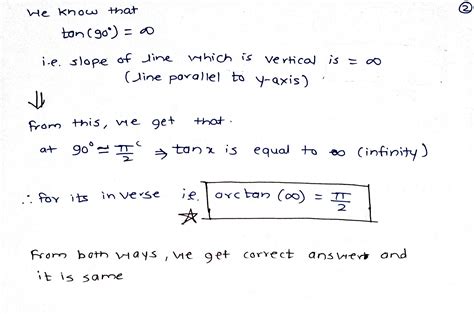 ②
We know that
tan(90°) = ∞
i.e. slope of line which is vertical is = ∞
(line parallel to y-axis)
⇓
from this, we get that.
at 90° ≃ π/2 ᶜ ⇒ tan x is equal to ∞ (infinity)
∴ for its inverse i.e. arctan (∞) = π/2
☆
From both ways, we get correct answer and
it is same